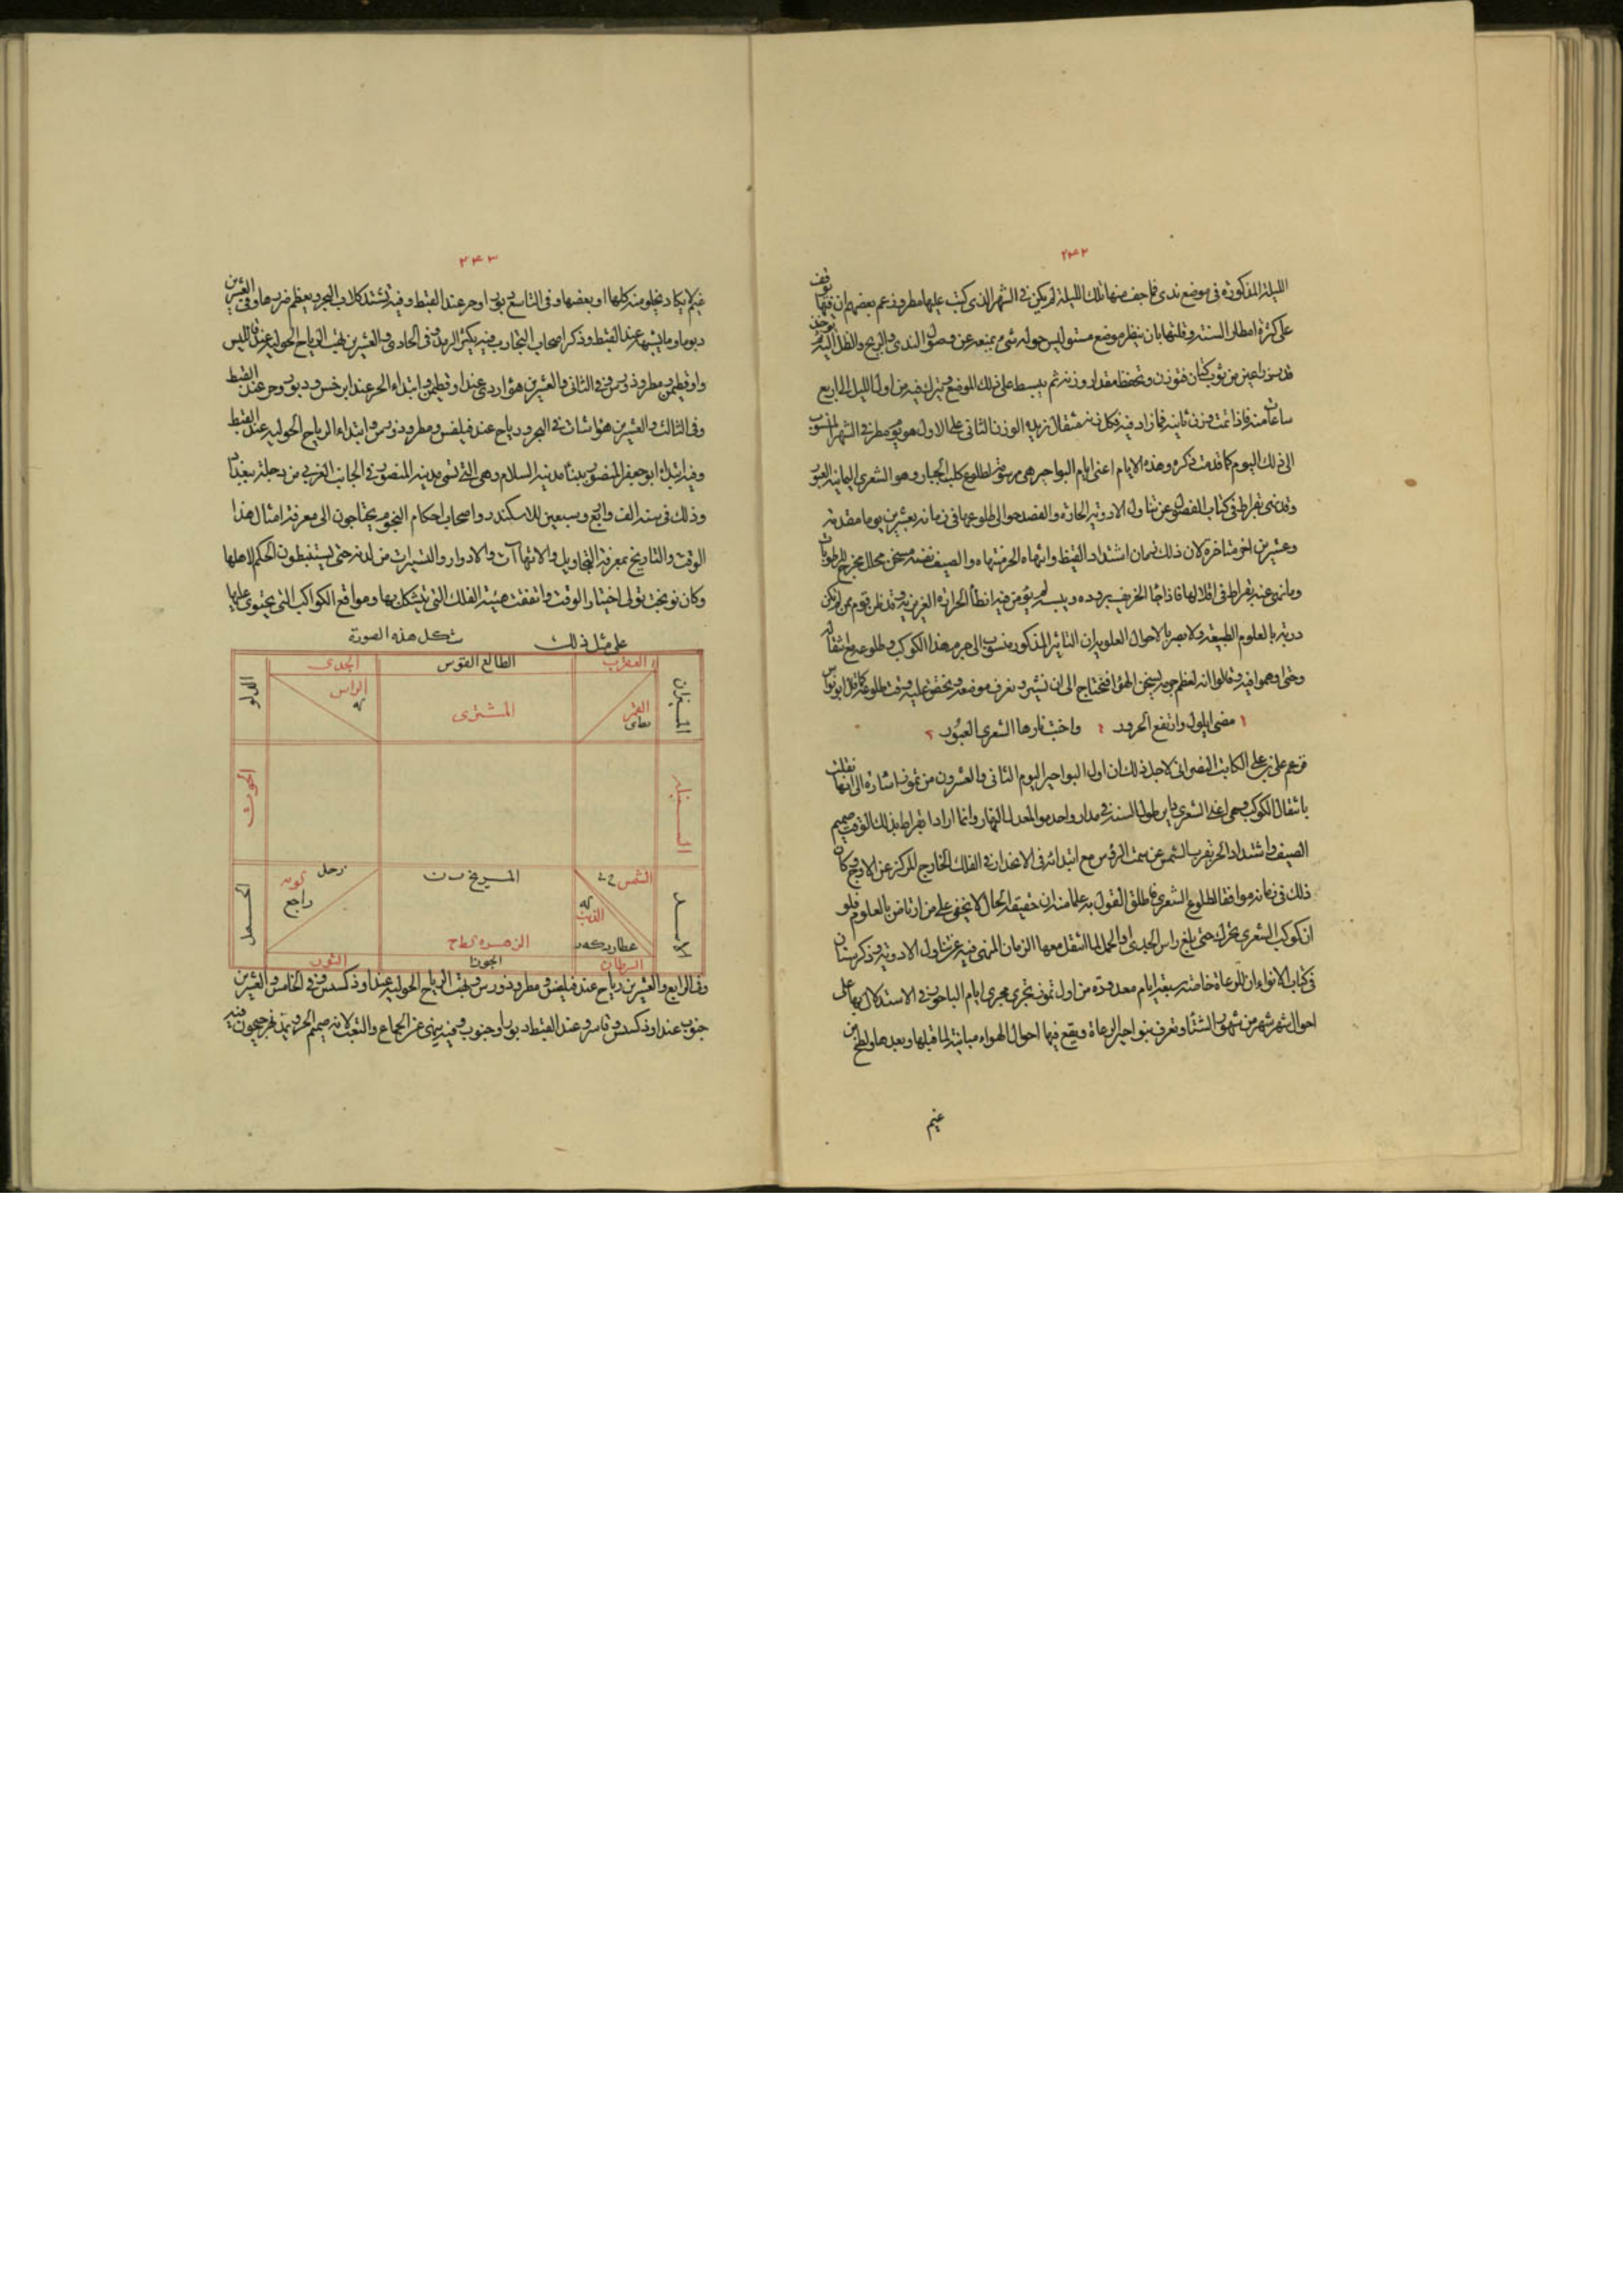 ٢٤٢
الليلة المذكورة في موضع ندى فما جف منها تلك الليلة لم يكن في الشهر الذي كتب عليها مطر وزعم بعضهم ان قفها
على كثرة امطار السنة وقلتها بان ينظر موضع مستو ليس حوله شيء يمنعه عن وصول الندى والريح والظل اليه
ذراعين من ثوب كتان فتوزن وتحفظ مقدار وزنه ثم يبسط على ذلك الموضع ويترك فيه من اول الليل الى اربع
ساعات منه فاذا تمت وزن ثانية فما زاد فيه فكل زنة مثقال يزيد الوزن الثاني على الاول هو يوم مطر في الشهر المنسوب
الى ذلك اليوم كما قدمت ذكره وهذه الايام اعنى ايام البواحير هي مرسومة لطلوع كلب الجبار وهو الشعرى اليمانية العبور
وقد نهى بقراط في كتاب الفصول عن تناول الادوية الحارة والفصد حوالى طلوعها في زمانه بعشرين يوما متقدمة
وعشرين اخر متاخرة لان ذلك زمان اشتداد القيظ وانتهاء الحر منتهاه والصيف نفسه مسخن محلل مخرج للرطوبات
وما نهى عنه بقراط في اقلالها فاذا جاء الخريف ببرده ويبسه لم يؤمن فيه انطفاء الحرارة الغريزية وقد ظن قوم ممن لم يكن
دربة بالعلوم الطبيعية ولا بصر بالاحوال العلوية ان التاثير المذكور منسوب الى جرم هذا الكوكب وطلوعه مع تنقاله
وحتى اوهموا فيه وقالوا انه لعظم جرمه يسخن الهواء فنحتاج الى ان نشير ونعرف موضعه ونحقق عليه وقت طلوعه كما قال ابو نواس
مضى ايلول وارتفع الحرور واخبت نارها الشعرى العبور
فزعم على بن على الكاتب النصراني لاجل ذلك ان اول البواحير اليوم الثاني والعشرون من تموز اشارة الى انها نقلت
بانتقال الكوكب وهي اعني الشعرى دائن طول السنة في مدار واحد مواز لمعدل النهار وانما اراد بقراط بذلك الوقت صميم
الصيف واشتداد الحر بقرب الشمس عن سمت الرؤس مع ابتدائه في الانحدار في الفلك الخارج المركز عن الاوج وكان
ذلك في زمانه موافقا لطلوع الشعرى فاطلق القول به علما منه ان حقيقة الحال لا يخفى على من ارتاض بالعلوم فلو
ان كوكب الشعرى تحرك حتى بلغ راس الجدي او الحمل لما انتقل معها الزمان المنهي فيه عن تناول الادوية وذكر سنان
في كتاب الانواء ان للوعاة خاصة سبعة ايام معدودة من اول تموز تجري مجرى ايام الباحور في الاستدلال بها على
احوال شهر شهر من شهور الشتاء وتعرف ببواحير الوعاة ويقع فيها احوال الهواء مباينة لما قبلها وبعدها
غيم
٢٤٣
غيم لا يكاد يخلو منه كلها او بعضها وفي التاسع دبور او حر عند القبط وفيه تشتد كلاب البحر ويعظم ضررها وفي العشرين
دبور او ما يشبهها عند القبط وذكر اصحاب التجارب فيه يكثر الرمد وفي الحادي والعشرين تهب الرياح الحولية عند
واوقطيمن مطر وذوسيس وفي الثاني والعشرين هواء ردي عند اوقطيمن وابتداء الحر عند ابرخس ودبور وحر عند القبط
وفي الثالث والعشرين هواء شات في البحر ورياح عند فيلفس ومطرودورس وابتداء الرياح الحولية عند القبط
وفيه ابتدأ ابو جعفر المنصور ببناء مدينة السلام وهي التي تسمى مدينة المنصور في الجانب الغربي من دجلة ببغداد
وذلك في سنة الف واربع وسبعين للاسكندر واصحاب احكام النجوم يحتاجون الى معرفة امثال هذا
الوقت والتاريخ بمعرفة التحاويل والانتهاآت والادوار والتسييرات من لدنه حتى يستنبطون الحكم لاهلها
وكان نوبخت تولى اختيار الوقت واتفقت هيئة الفلك التي تتشكل بها ومواقع الكواكب التي يحتوى عليها
على مثل ذلك شكل هذه الصورة
العقرب
الطالع القوس
الجدى
الميزان
القمر
المشترى
الراس
الدلو
السنبلة
الحوت
الشمس
المريخ
زحل
راجع
الاسد
الذنب
عطارد
الزهرة
الحمل
السرطان
الجوزا
الثور
وفي الرابع والعشرين رياح عند فيليفس ومطرودورس وتهب الرياح الحولية عند اوذكسس وفي الخامس والعشرين
جنوب عند اوذكسس وقاسر وعند القبط دبور او جنوب وفيه ينهى عن الجماع والتعب لانه صميم الحر